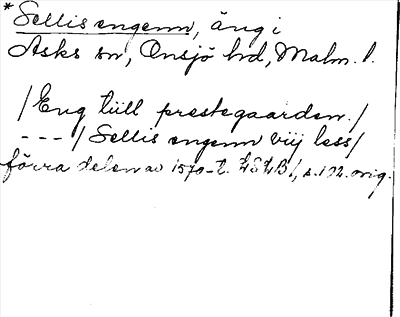 *Sellis engenn, äng i
Asks sn, Onsjö hd, Malm. l.
/Eng tiill prestegaarden./
---/Sellis engenn viij less/
förra delen av 1570-t. LSLB, s. 122. orig.